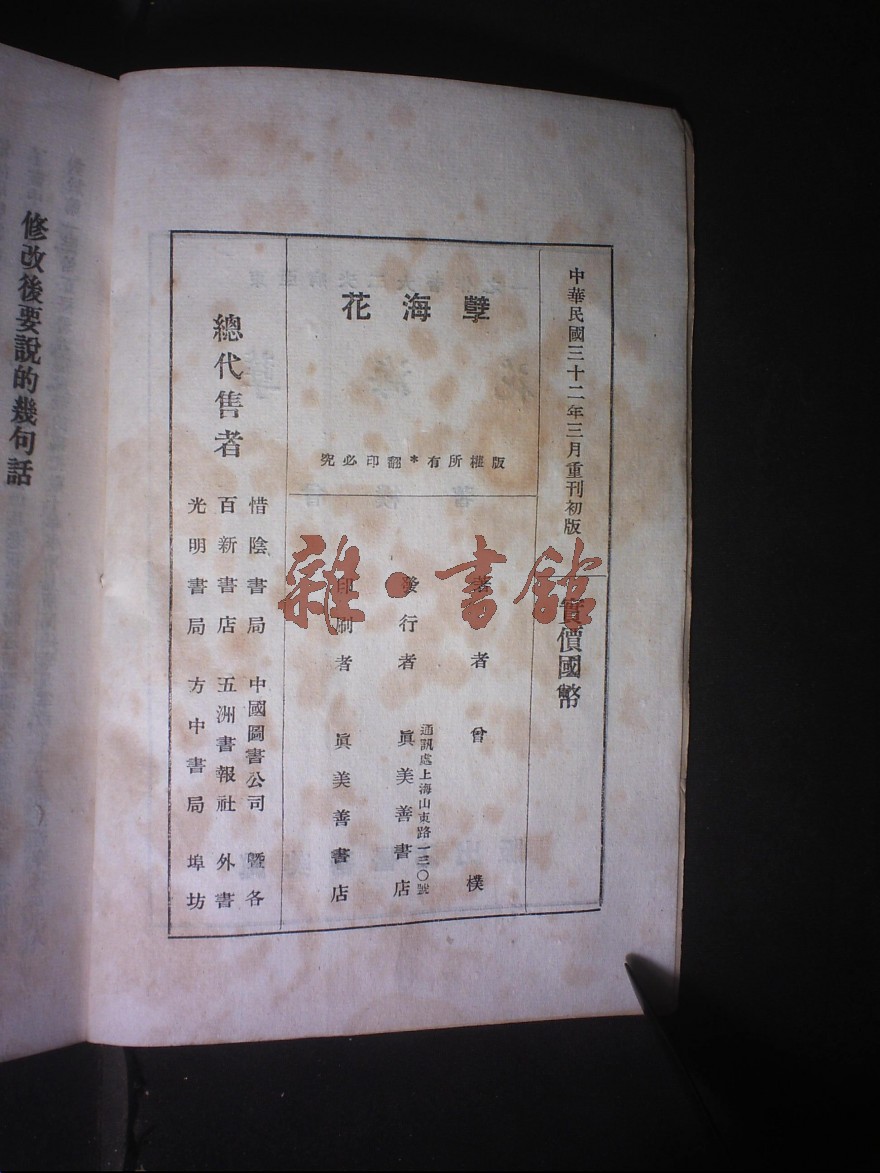 中華民國三十二年三月重刊初版
實價國幣
孽海花
版權所有*翻印必究
著者 曾樸
發行者 眞美善書店
通訊處上海山東路一三〇號
印刷者 眞美善書店
總代售者
惜陰書局 中國圖書公司 曁各
百新書店 五洲書報社 外書
光明書局 方中書局 埠坊
修改後要說的幾句話
雜·書館